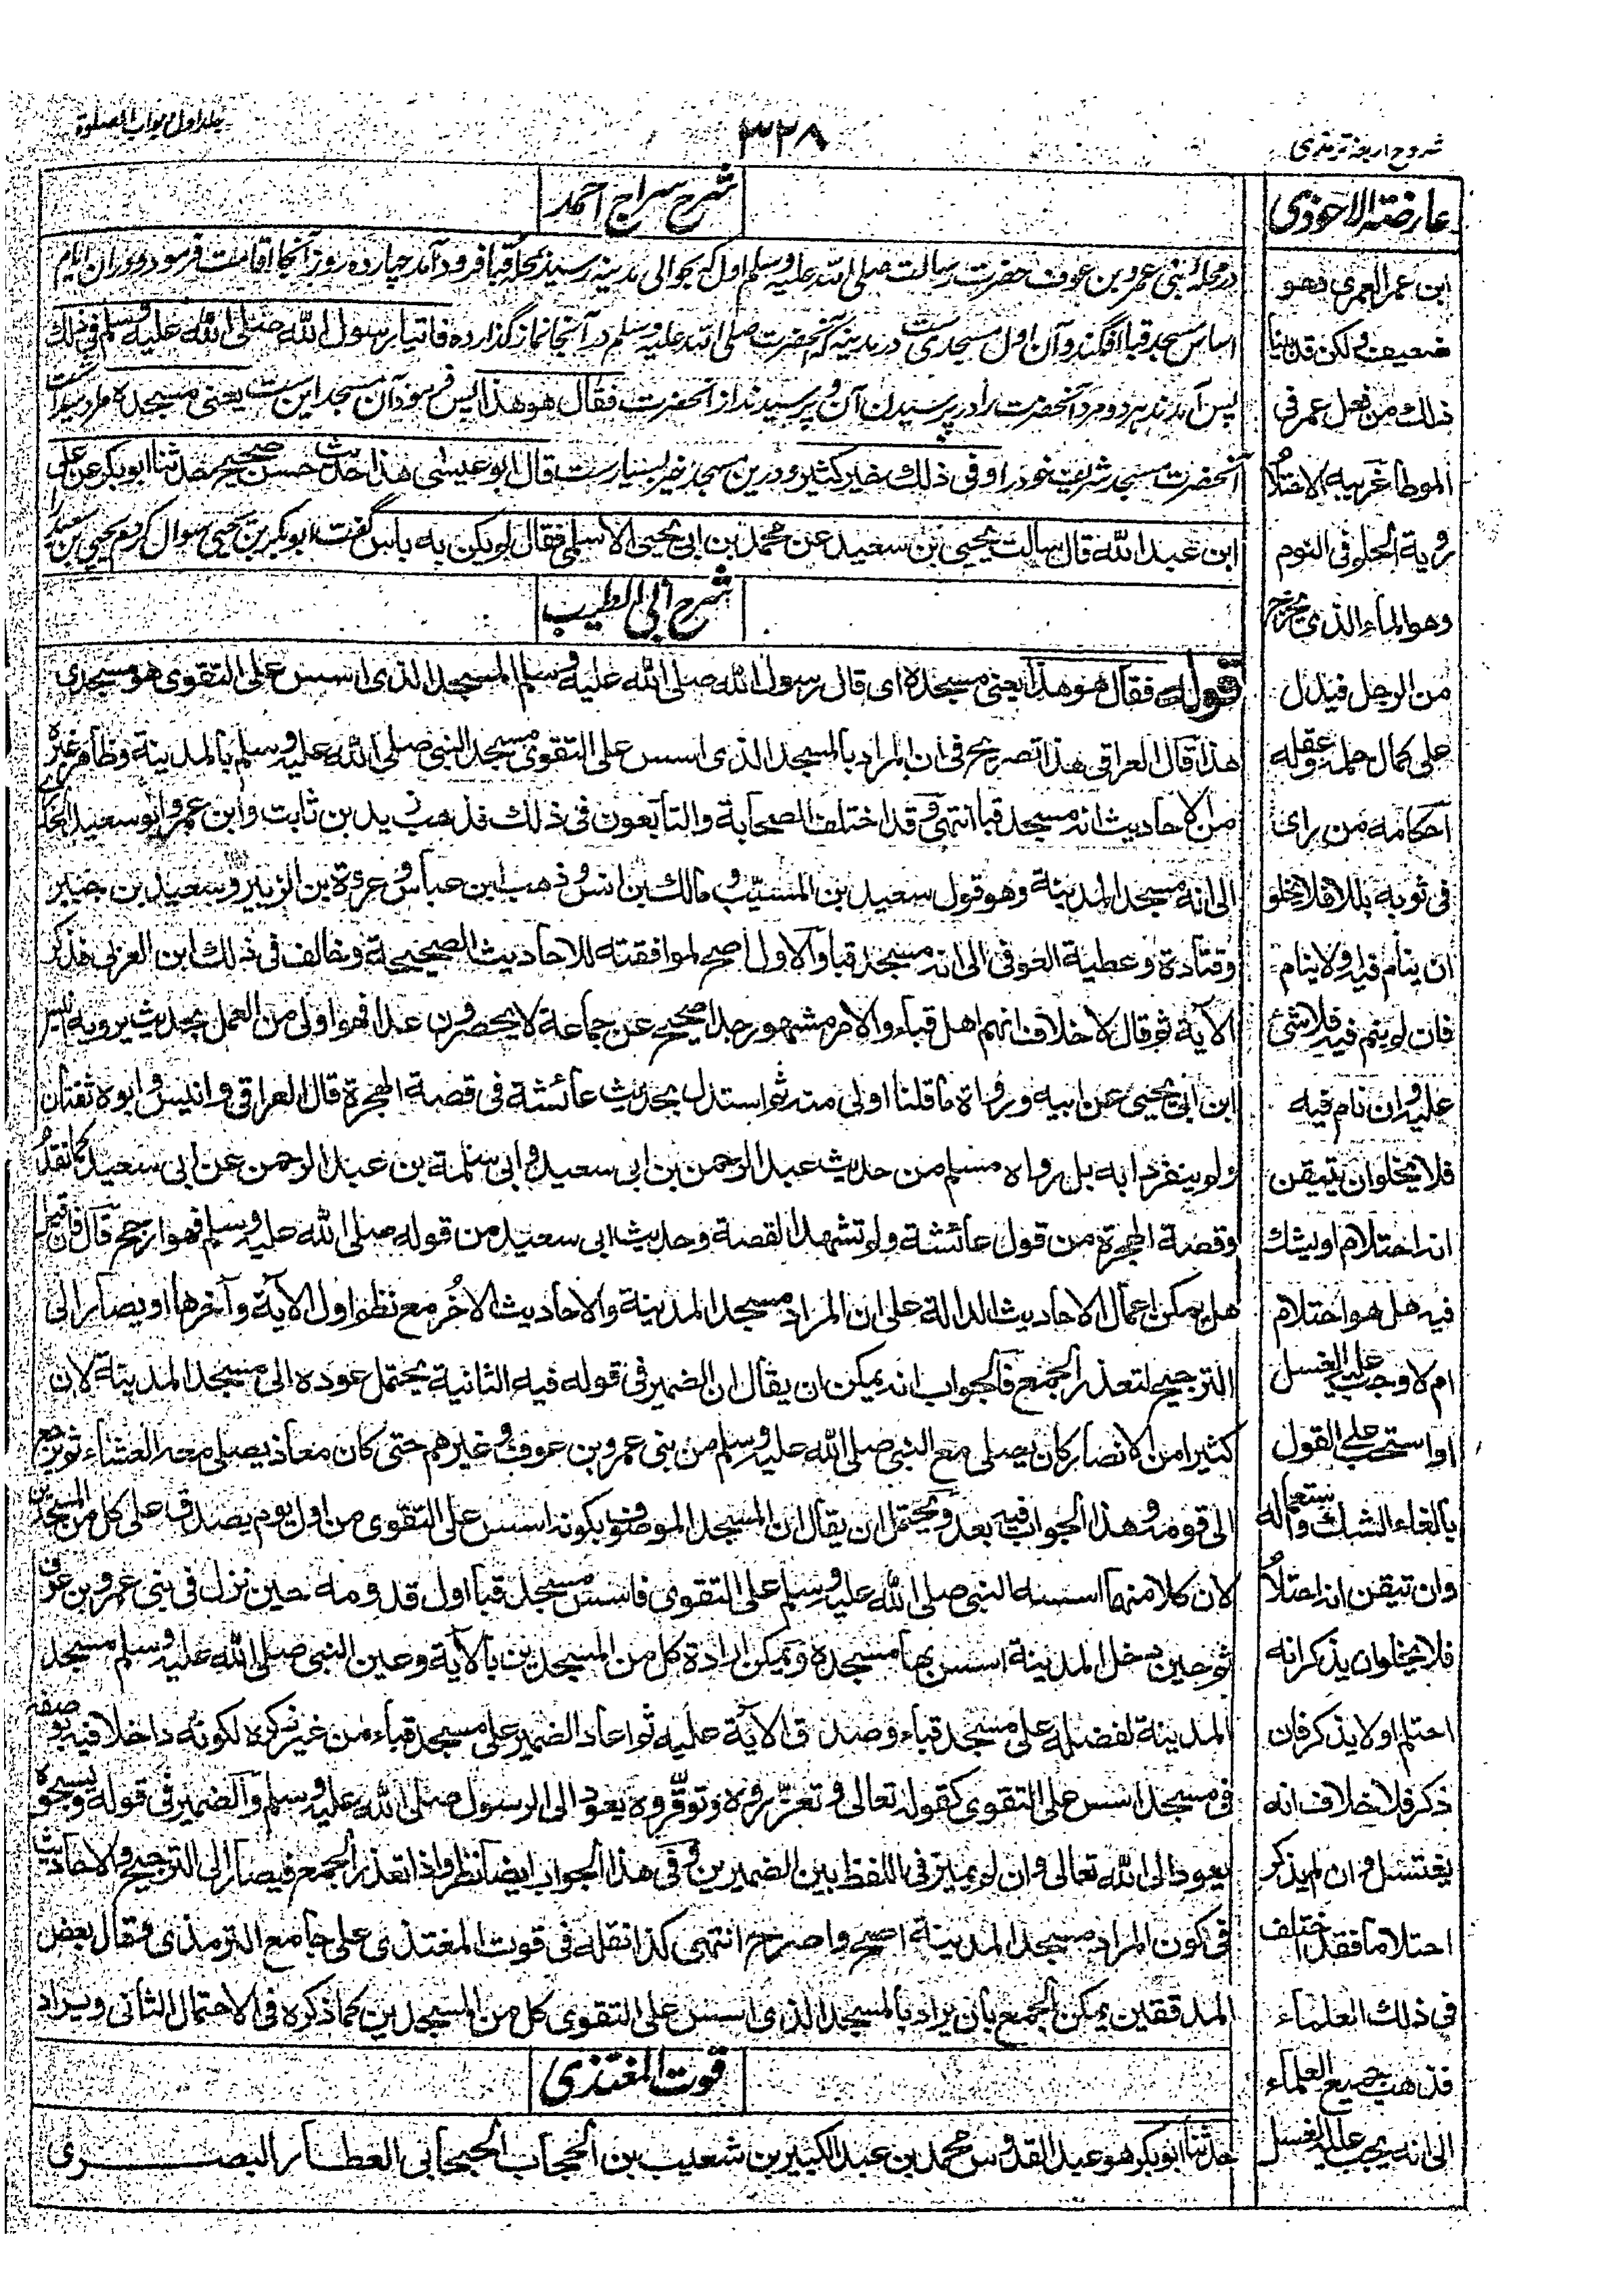 شروح اربعۀ ترمذی
۳۲۸
جلد اول ابواب الصلوة
عارضة الاحوذی
ابن عمر العمری فهو
ضعيف ولكن قد بينا
ذلك من فعل عمر فی
الموطأ غريبه الاحتلام
روية الحلم فی النوم
وهو الماء الذی يخرج
من الرجل فيدل
علی كمال حمل عقله
احكامه من رای
فی ثوبه بللا فلا يخلو
ان ينام فيه ولا ينام
فان لم ينم فيه فلا شئ
عليه وان نام فيه
فلا يخلو ان يتيقن
انه احتلام او يشك
فيه هل هو احتلام
ام لا وجب عليه الغسل
او استحب علی القول
بالغاء الشك واستعماله
وان تيقن انه احتلام
فلا يخلو ان يذكر انه
احتلم او لا يذكر فان
ذكر فلا خلاف انه
يغتسل وان لم يذكر
احتلاما فقد اختلف
فی ذلك العلماء
فذهب جميع العلماء
الی انه يجب عليه الغسل
شرح سراج احمد
در محلۀ بنی عمرو بن عوف حضرت رسالت صلی الله عليه وسلم اول كه بحوالی مدينه رسيد بمحلۀ قبا فرود آمد چهارده روز آنجا اقامت فرمود و دران ايام
اساس مسجد قبا افگند و آن اول مسجدی ست در مدينه كه آنحضرت صلی الله عليه وسلم در آنجا نماز گذارده فاتيا رسول الله صلی الله عليه وسلم فی ذلك
پس آمدند هر دو مرد آنحضرت را در پرسيدن آن و پرسيدند از آنحضرت فقال هو هذا پس فرمود آن مسجد اين ست يعنی مسجده مراد ميداشت
آنحضرت مسجد شريف خود را و فی ذلك خير كثير و درين مسجد خير بسيارست قال ابو عيسی هذا حديث حسن صحيح حدثنا ابو بكر عن علی
ابن عبد الله قال سالت يحيی بن سعيد عن محمد بن ابی يحيی الاسلمی فقال لم يكن به باس گفت ابو بكر بن يحيی سوال كردم يحيی بن سعيد را
شرح ابی الطيب
قوله فقال هو هذا يعنی مسجده ای قال رسول الله صلی الله عليه وسلم المسجد الذی اسس علی التقوی هو مسجدی
هذا قال العراقی هذا تصريح فی ان المراد بالمسجد الذی اسس علی التقوی مسجد النبی صلی الله عليه وسلم بالمدينة وظاهر غيره
من الاحاديث انه مسجد قبا انتهی وقد اختلف الصحابة والتابعون فی ذلك فذهب زيد بن ثابت وابن عمر وابو سعيد الخدری
الی انه مسجد المدينة وهو قول سعيد بن المسيّب ومالك بن انس وذهب ابن عباس وعروة بن الزبير وسعيد بن جبير
وقتادة وعطية العوفی الی انه مسجد قبا والاول اصح لموافقته للاحاديث الصحيحة وخالف فی ذلك ابن العربی فذكر
الآية ثم قال لا خلاف انهم اهل قباء والامر مشهور جدا صحيح عن جماعة لا يحصرون عدا فهو اولی من العمل بحديث يرويه انيس
ابن ابی يحيی عن ابيه ورواة ما قلنا اولی منه ثم استدل بحديث عائشة فی قصة الهجرة قال العراقی وانيس وابوه ثقتان
ولم ينفردا به بل رواه مسلم من حديث عبد الرحمن بن ابی سعيد وابی سلمة بن عبد الرحمن عن ابی سعيد كما تقدم
وقصة الهجرة من قول عائشة ولم تشهد القصة وحديث ابی سعيد من قوله صلی الله عليه وسلم فهو ارجح قال فان قيل
هل يمكن اعمال الاحاديث الدالة علی ان المراد مسجد المدينة والاحاديث الاُخر مع نظم اول الآية وآخرها او يصار الی
الترجيح لتعذر الجمع فالجواب انه يمكن ان يقال ان الضمير فی قوله فيه الثانية يحتمل عوده الی مسجد المدينة لان
كثيرا من الانصار كان يصلی مع النبی صلی الله عليه وسلم من بنی عمرو بن عوف وغيرهم حتی كان معاذ يصلی معه العشاء ثم يرجع
الی قومه وهذا الجواب فيه بعد ويحتمل ان يقال ان المسجد الموصوف بكونه اسس علی التقوی من اول يوم يصدق علی كل من المسجدين
لان كلا منهما اسسه النبی صلی الله عليه وسلم علی التقوی فاسس مسجد قبا اول قدومه حين نزل فی بنی عمرو بن عوف
ثم حين دخل المدينة اسس بها مسجده ويمكن ارادة كل من المسجدين بالآية وعين النبی صلی الله عليه وسلم مسجد
المدينة لفضله علی مسجد قباء وصدق الآية عليه ثم اعاد الضمير علی مسجد قباء من غير ذكره لكونه داخلا فيه بوصفه
فی مسجد اسس علی التقوی كقوله تعالی وتعزّروه وتوقّروه يعود الی الرسول صلی الله عليه وسلم والضمير فی قوله وتسبحوه
يعود الی الله تعالی وان لم يميز فی اللفظ بين الضميرين وفی هذا الجواب ايضا نظر واذا تعذر الجمع فيصار الی الترجيح والاحاديث
فی كون المراد مسجد المدينة اصح واصرح انتهی كذا نقله فی قوت المغتذی علی جامع الترمذی وقال بعض
المدققين يمكن الجمع بان يراد بالمسجد الذی اسس علی التقوی كل من المسجدين كما ذكره فی الاحتمال الثانی ويراد
قوت المغتذی
حدثنا ابو بكر هو عبد القدوس محمد بن عبد الكبير بن شعيب بن الحجاب الحبحابی العطار البصری